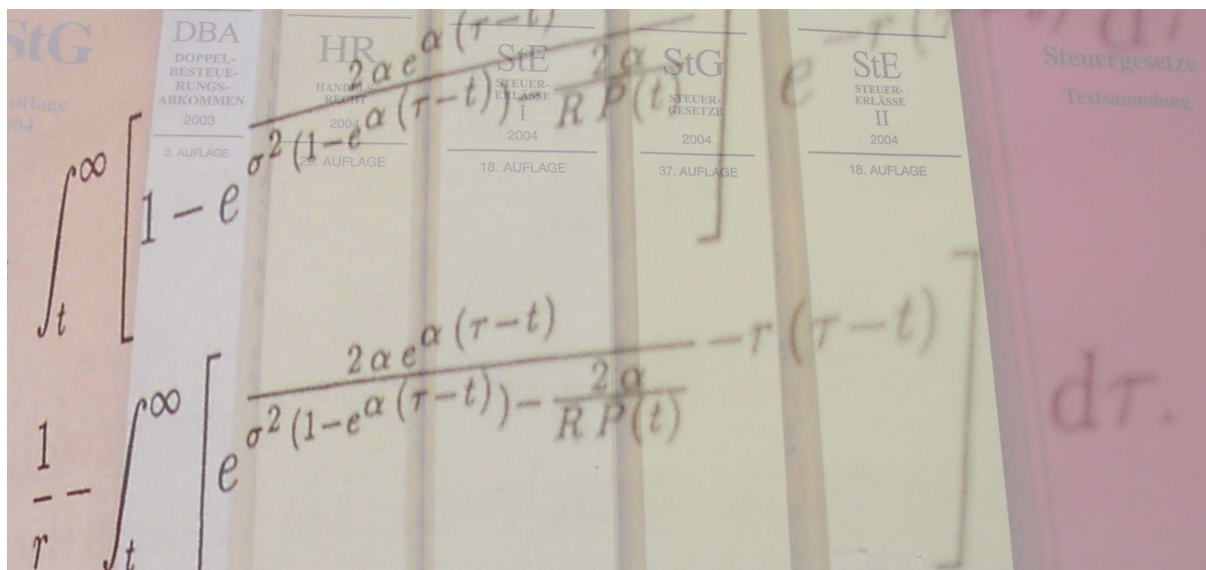 StG
uflage
DBA
DOPPEL-
BESTEUE-
RUNGS-
ABKOMMEN
2003
2. AUFLAGE
HR
HANDELS-
RECHT
2004
AUFLAGE
StE
STEUER-
ERLÄSSE
I
2004
18. AUFLAGE
StG
STEUER-
GESETZE
2004
37. AUFLAGE
StE
STEUER-
ERLÄSSE
II
2004
18. AUFLAGE
Steuergesetze
Textsammlung
∫_t^∞ [ 1 − e^{\frac{2 α e^{α (τ−t)}}{σ^2 (1−e^{α (τ−t)})−\frac{2 α}{R P(t}}} ] e^{−r (} dτ
\frac{1}{r} − ∫_t^∞ [ e^{\frac{2 α e^{α (τ−t)}}{σ^2 (1−e^{α (τ−t)})−\frac{2 α}{R P(t)}} −r (τ−t)} ] dτ.